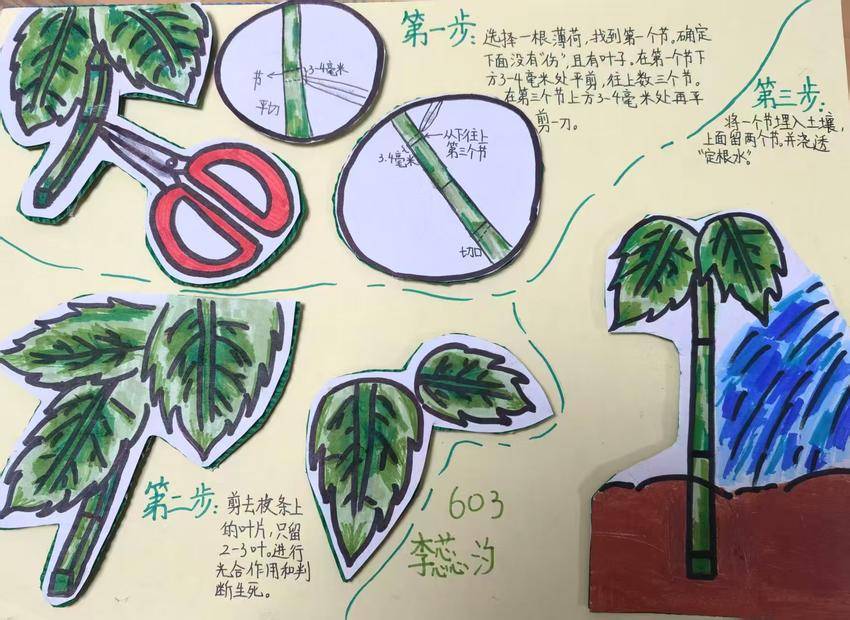 第一步:
选择一根薄荷,找到第一个节。确定
下面没有“伤”,且有叶子。在第一个节下
方3-4毫米处平剪,往上数三个节。
在第三个节上方3-4毫米处再平
剪一刀。
节
3-4毫米
平切
从下往上
第三个节
3.4毫米
切口
第二步:
剪去枝条上
的叶片,只留
2-3叶。进行
光合作用和判
断生死。
第三步:
将一个节埋入土壤,
上面留两个节。并浇透
“定根水”。
603
李蕊汐